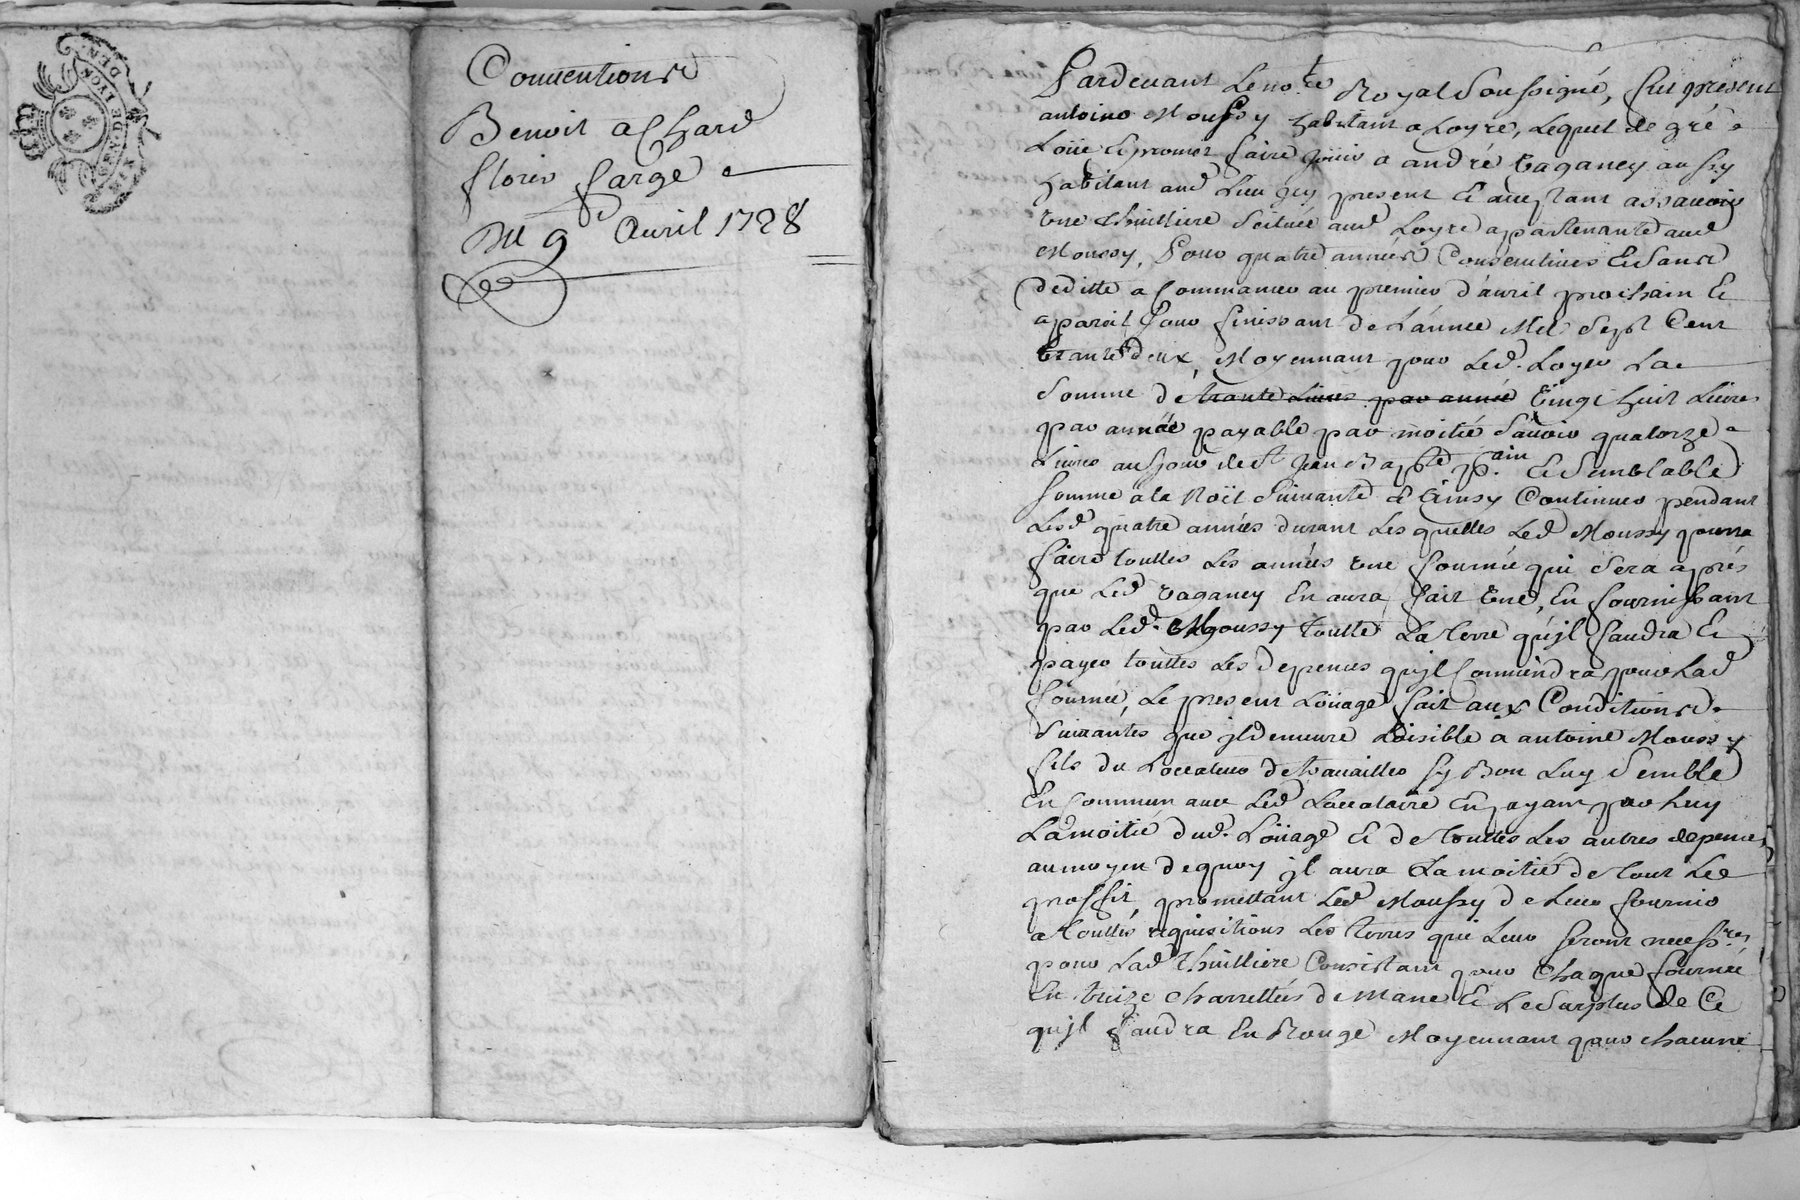 GEN. DE LYON
DEN.
Conventions
Benoit achard
floris farge
Du 9e Avril 1728
Pardevant Le no.re Royal Soussigné, fut present
antoine Moussy habitant a Loyre, Lequel de gré
Loüe Et promet faire joüir a andré Vaganey aussy
habitant aud Lieu icy present Et acceptant assavoir
Une thuilliere Scituée aud Loyre appartenante aud
Moussy, Pour quatre années Consecutives Et Sans
deditte a Commancer au premier d'avril prochain Et
a pareil Jour finissant de L'année Mil Sept Cent
trante deux, Moyennant pour Led. Loyer La
Somme de trante Livres par année Vingt huit Livres
par année payable par moitié Savoir quatorze
Livres au Jour de St Jean Bapte p.ain Et Semblable
Somme a la Noël Suivante & Ainsy Continuer pendant
Lesd quatre années durant Les quelles Led Moussy pourra
faire touttes Les années Une fournée qui Sera après
que Led Vaganey En aura fait Une, En fournissant
par Led. Moussy toutte La terre qu'jl faudra Et
payer touttes Les depences qu'jl Conviendra pour Lad
fournée, Le present Loüage fait aux Conditions
Suivantes que jl demeure Loisible a antoine Moussy
fils du Locateur de travailler sy Bon Luy Semble
En Commun avec Led Locataire En payant par Luy
La moitié dud. Loüage Et de touttes Les autres depences
au moyen de quoy jl aura La moitié de tout Le
proffit, promettant Led Moussy de Leur fournir
a touttes requisitions Les terres que Leur Seront necess.res
pour Lad thuilliere Consistant pour Chaque fournée
En treize charrettées de Mane Et Le Surplus de Ce
qu'jl faudra En Rouge Moyennant pour chacune